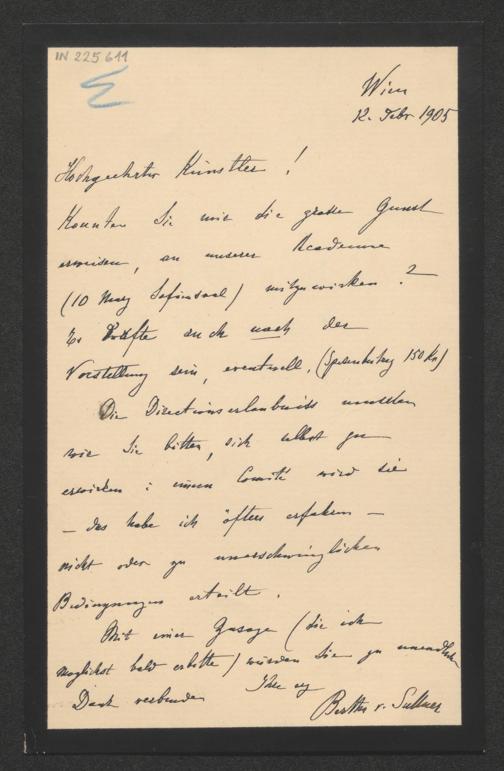 IN 225 611
Wien
12. Febr 1905
Hochgeehrter Künstler!
Könnten Sie mir die große Gunst
erweisen, an unserer Academie
(10 März Sofiensaal) mitzuwirken?
Es dürfte auch nach der
Vorstellung sein, eventuell, (Spesenbeitrag 150 Kr)
Die Directionserlaubniss müssten
wir Sie bitten, sich selbst zu
erwirken: einem Comité wird sie
– das habe ich öfters erfahren –
nicht oder zu unerschwinglichen
Bedingungen erteilt.
Mit einer Zusage (die ich
möglichst bald erbitte) würden Sie zu unendlichem
Dank verbinden Ihre erg
Bertha v. Suttner